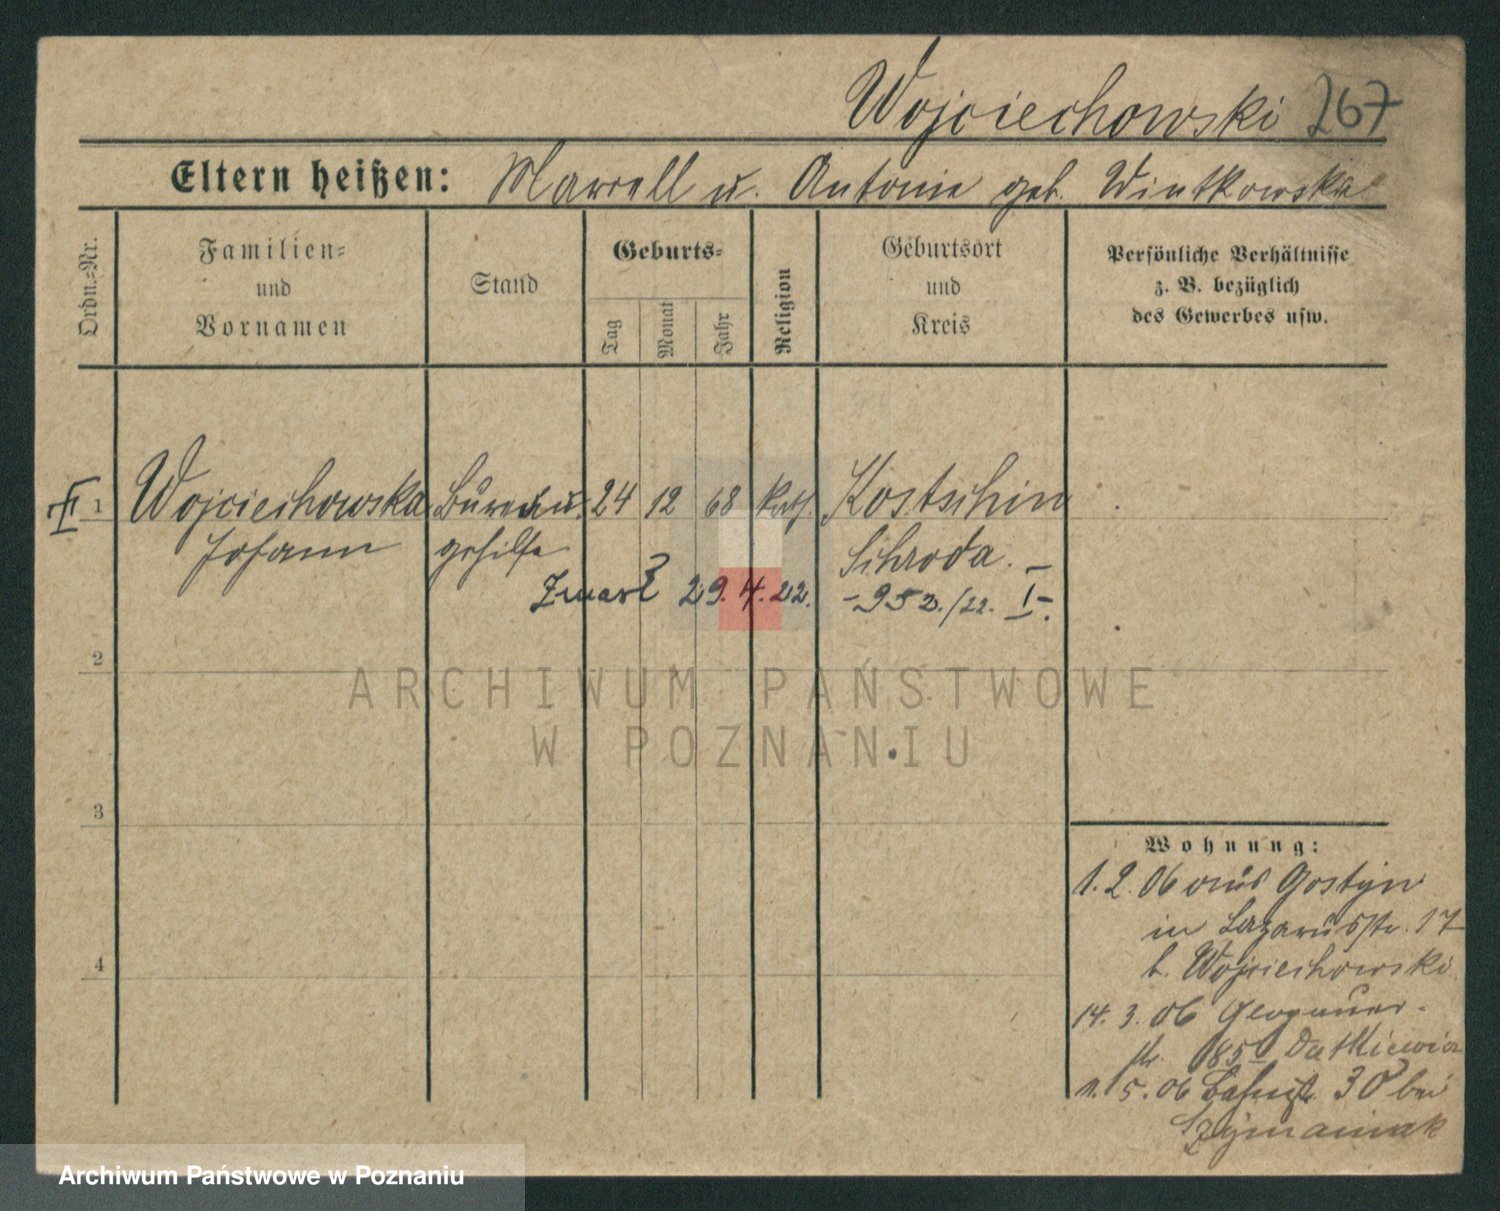 Wojciechowski 267
Eltern heißen: Marcell u. Antonie geb. Wintkowska
Ordn.-Nr.
Familien-
und
Vornamen
Stand
Geburts-
Tag
Monat
Jahr
Religion
Geburtsort
und
Kreis
Persönliche Verhältnisse
z. B. bezüglich
des Gewerbes usw.
II 1 Wojciechowska Bureau 24 12 68 kath. Kostschin
Johann gehilfe Schroda.
Zmarł 29. 4. 22. -953./22. I-.
2
ARCHIWUM PAŃSTWOWE
W POZNANIU
3
4
Wohnung:
1. 2. 06 aus Gostyn
in Lazarusstr. 17
b. Wojciechowski
14. 3. 06 Glogauer-
str. 85 Datkiewicz
1. 5. 06 30 bei
Szymaniak
Archiwum Państwowe w Poznaniu